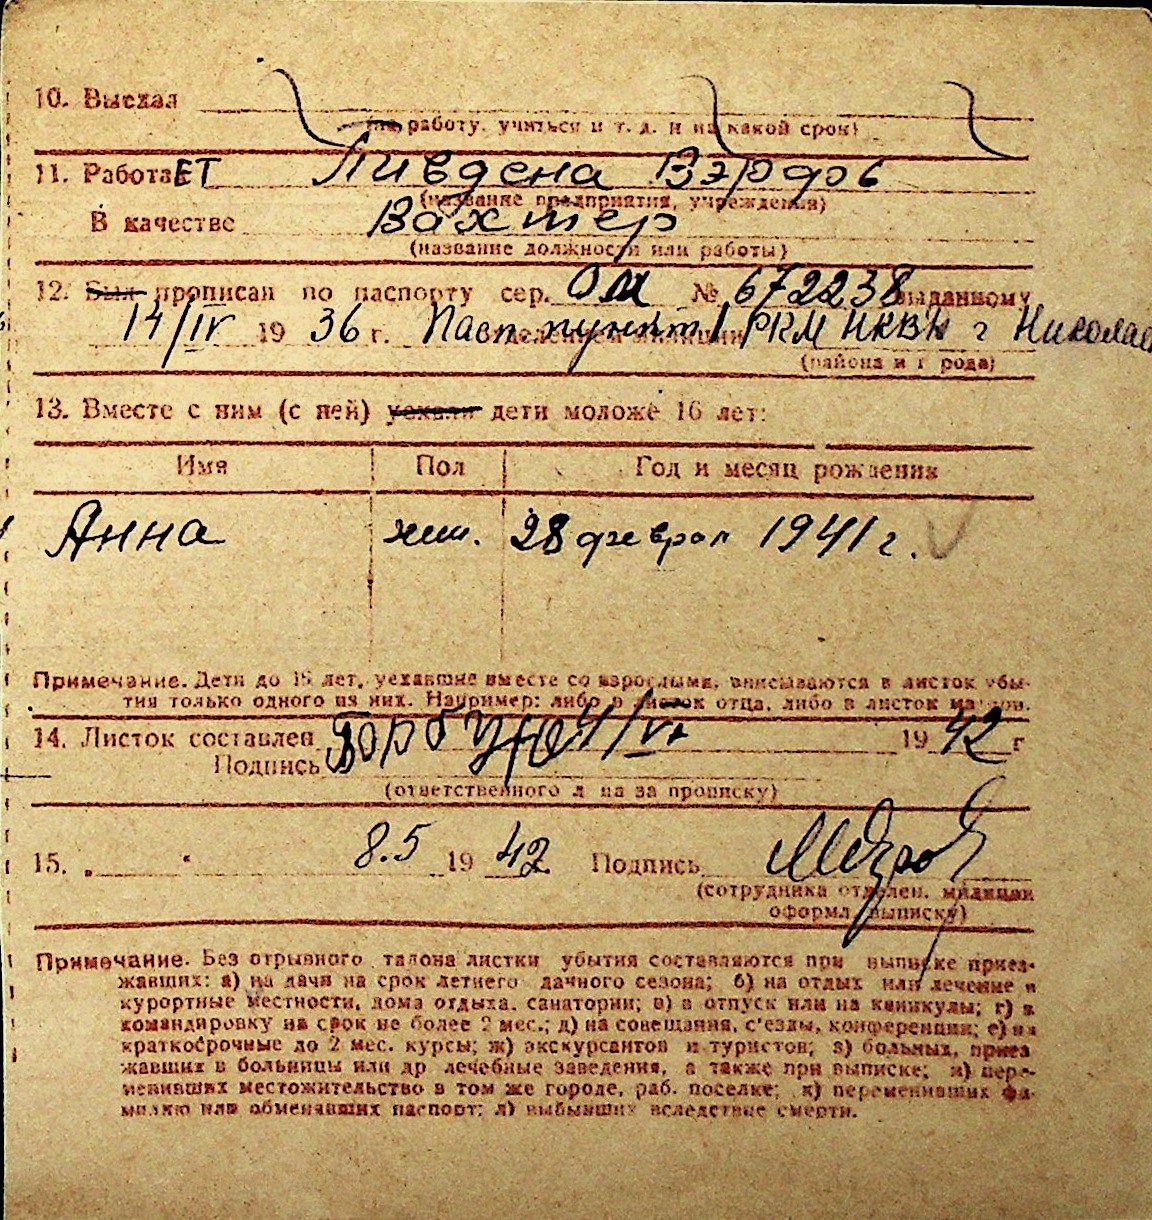 10. Выехал
(на работу, учиться и т. д. и на какой срок)
11. РаботаЕТ Пивдена Вэрдов
(название предприятия, учреждения)
В качестве Вахтер
(название должности или работы)
12. Был прописан по паспорту сер. ОМ № 672238 выданному
14/IV 19 36 г. Пасп. пункт 1 РКМ НКВД г Николаев
(района и города)
13. Вместе с ним (с ней) уехали дети моложе 16 лет:
Имя Пол Год и месяц рождения
Анна жен. 28 феврал 1941 г.
Примечание. Дети до 16 лет, уехавшие вместе со взрослыми, вписываются в листок убы-
тия только одного из них. Например: либо в листок отца, либо в листок матери.
14. Листок составлен 4/V 1942 г
Подпись
(ответственного лица за прописку)
15. „ “ 8.5 19 42 Подпись
(сотрудника отделен. милиции
оформл. выписку)
Примечание. Без отрывного талона листки убытия составляются при выписке приез-
жавших: а) на дачи на срок летнего дачного сезона; б) на отдых или лечение в
курортные местности, дома отдыха, санатории; в) в отпуск или на каникулы; г) в
командировку на срок не более 2 мес.; д) на совещания, с'езды, конференции; е) на
краткосрочные до 2 мес. курсы; ж) экскурсантов и туристов; з) больных, приез
жавших в больницы или др лечебные заведения, а также при выписке; и) пере-
менивших местожительство в том же городе, раб. поселке; к) переменивших фа-
милию или обменявших паспорт; л) выбывших вследствие смерти.